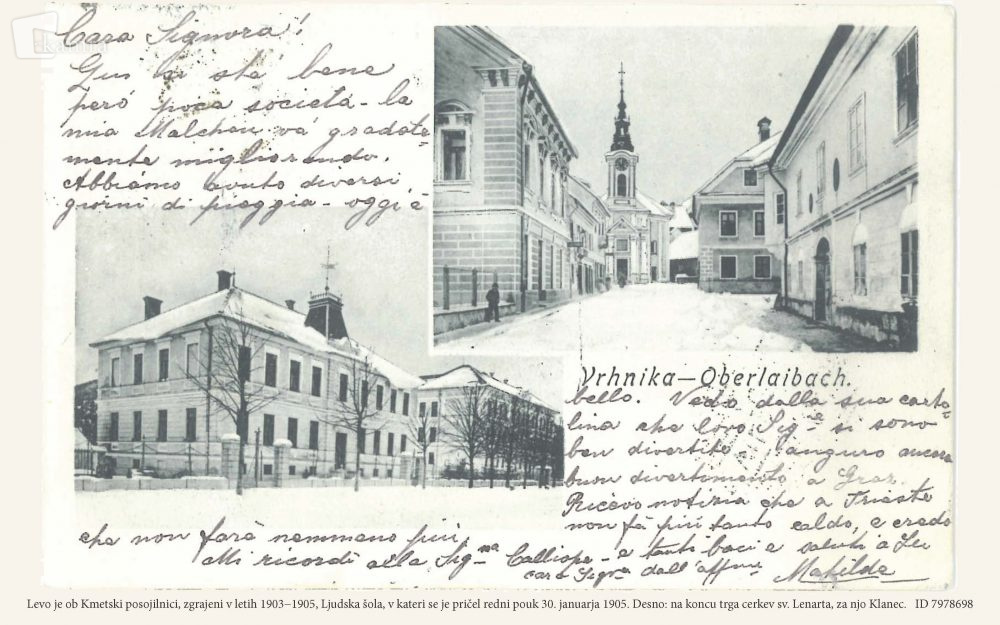 Cara Signora!
Qui si stà bene
peró poca societá - la
mia Malchen vá gradata-
mente migliorando.
Abbiámo avuto diversi
giorni di pioggia - oggi é
Vrhnika—Oberlaibach.
bello. Vedo dalla sua carto-
lina che loro Sig.re si sono
ben divertite, auguro ancora
buon divertimento a Graz.
Ricevo notizia che a Trieste
non fá piú tanto caldo, e credo
che non fará nemmeno piú.
Mi ricordi alla Sig.na Calliope - e tanti baci e saluti a Lei
cara Sigra dall'affma Matilde
Levo je ob Kmetski posojilnici, zgrajeni v letih 1903–1905, Ljudska šola, v kateri se je pričel redni pouk 30. januarja 1905. Desno: na koncu trga cerkev sv. Lenarta, za njo Klanec. ID 7978698